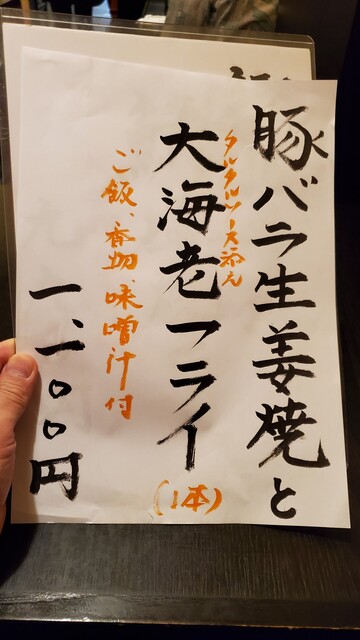 豚バラ生姜焼と
タルタルソース添え
大海老フライ
(1本)
ご飯、香物、味噌汁付
一、一〇〇円